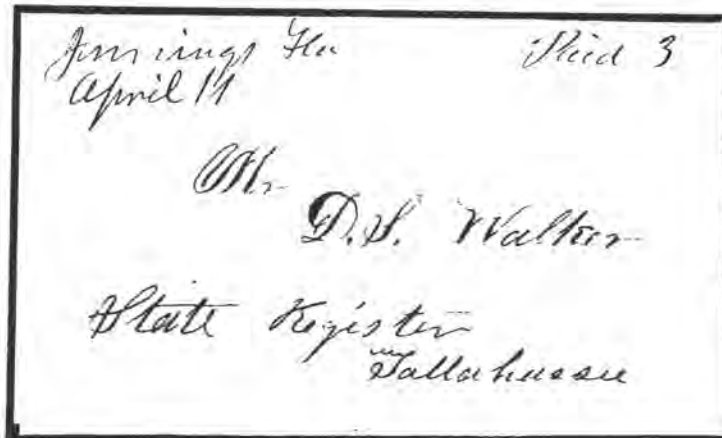 Jennings Fla Paid 3
April 11
Mr
D.S. Walker
State Register
Tallahassee